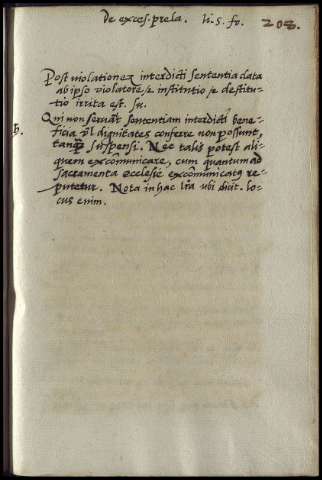 de exces. prela. li. 5. fo. 208.
Post violationem interdicti sententia lata
ab ipso violatore, se institutio se destitu-
tio irrita est. su.
h.
Qui non servat sententiam interdicti bene-
ficia vel dignitates conferre non possunt,
tanq̃ suspensi. Nec talis potest ali-
quem excõmunicare, cum quantum ad
sacramenta ecclesie excõmunicatꝰ re-
putetur. Nota in hac lr̃a ubi dicit. lo-
cus enim.